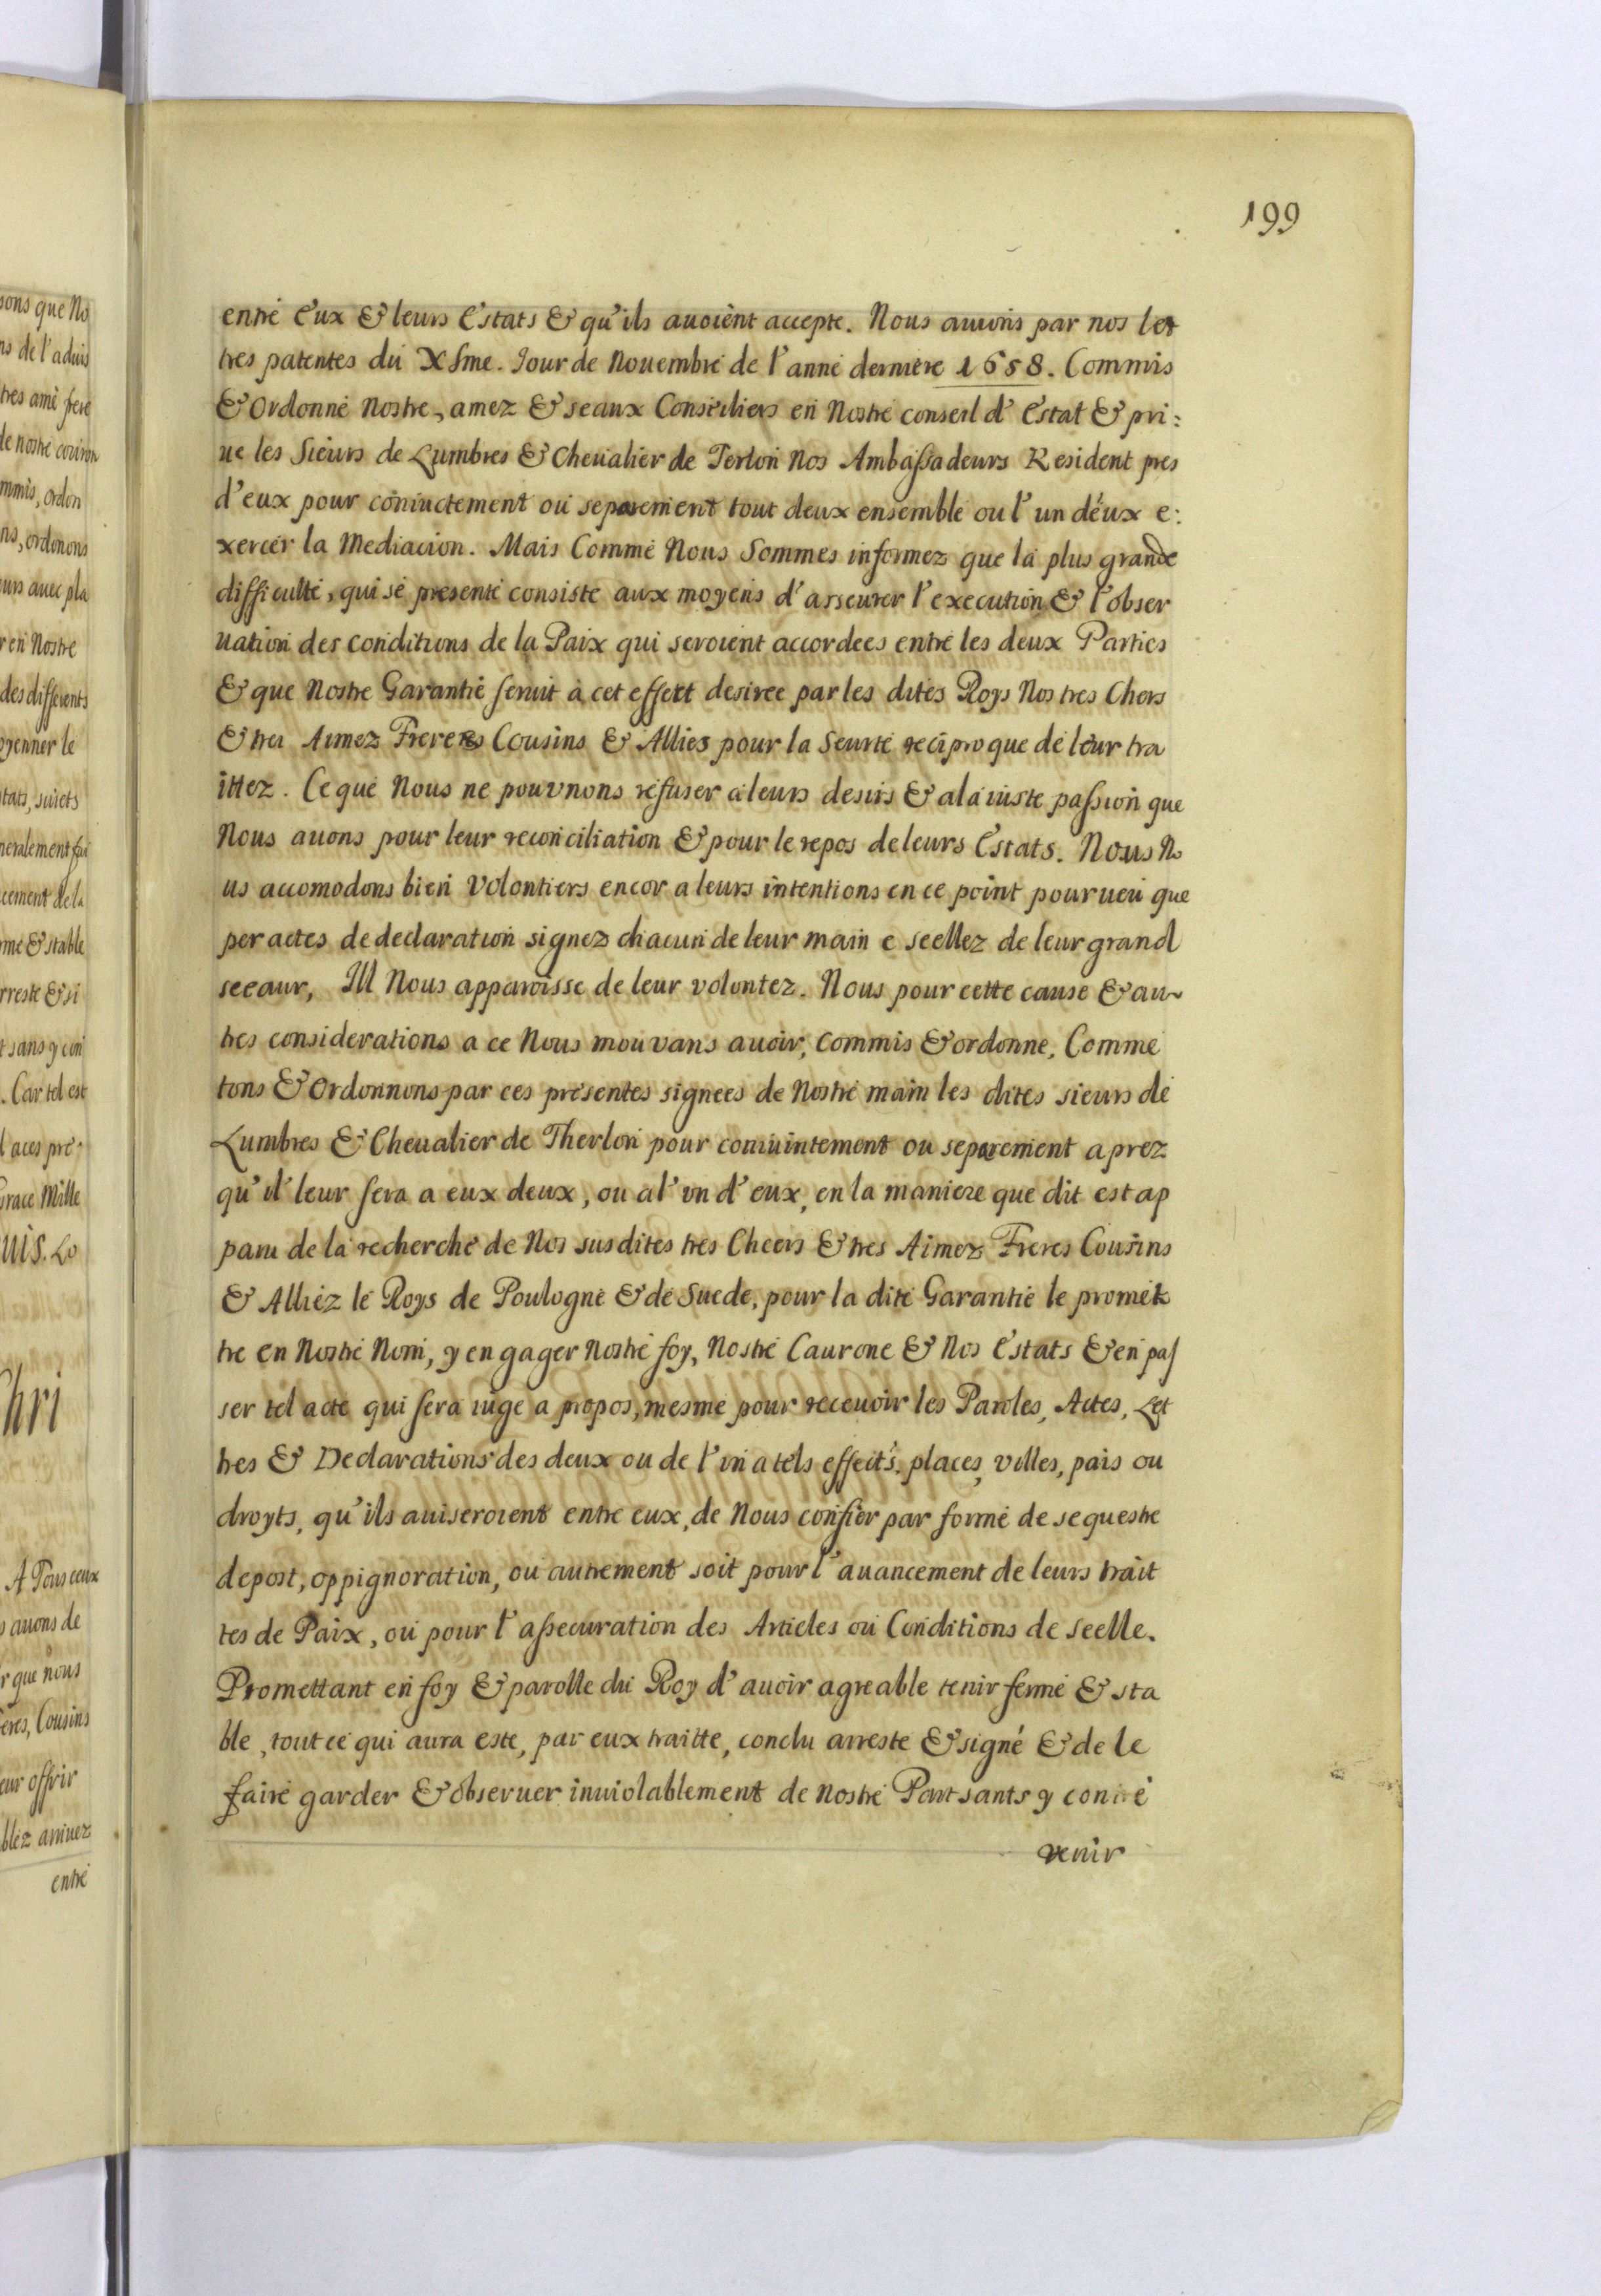 199
entre eux & leurs Estats & qu'ils auoient accepte. Nous auions par nos let
tres patentes du Xsme. Jour de Nouembre de l'anne derniere 1658. Commis
& Ordonne Nostre, amez & seaux Conseiliers en Nostre conseil d'Estat & pri:
ue les Sieurs de Lumbres & Cheualier de Terlon Nos Ambassadeurs Resident pres
d'eux pour coniuctement ou separement tout deux ensemble ou l'un d'eux e:
xercer la Mediacion. Mais Comme Nous Sommes informez que la plus grande
difficulte, qui se presente consiste aux moyens d'asseurer l'execution & l'obser
uation des conditions de la Paix qui seroient accordees entre les deux Parties
& que Nostre Garantie seruit à cet effect desiree par les dites Roys Nos tres Chers
& tres Aimez Freres Cousins & Alliez pour la Seurte reciproque de leur tra
ittez. Ce que Nous ne pouvnons refuser a leurs desirs & a la iuste passion que
Nous auons pour leur reconciliation & pour le repos de leurs Estats. Nous No
us accomodons bien Volontiers encor a leurs intentions en ce point pourueu que
per actes de declaration signez chacun de leur main e seellez de leur grand
seeaur, Ill Nous apparoisse de leur volontez. Nous pour cette cause & au
tres considerations a ce Nous mouvans auoir, commis & ordonne, Comme
tons & Ordonnons par ces presentes signees de Nostre main les dites sieurs de
Lumbres & Cheualier de Therlon pour coniuintement ou separement aprez
qu'il leur sera a eux deux, ou al'vn d'eux, en la maniere que dit est ap
paru de la recherche de Nos susdites tres Cheers & tres Aimez Freres Cousins
& Alliez le Roys de Poulogne & de Suede, pour la dite Garantie le promet
tre en Nostre Nom, y engager Nostre foy, Nostre Caurone & Nos Estats & en pas
ser tel acte qui sera iuge a propos, mesme pour receuoir les Paroles, Actes, Let
tres & Declarations des deux ou de l'vn a tels effects, places, villes, pais ou
droyts, qu'ils auiseroient entre eux, de Nous confier par forme de sequestre
depost, oppignoration, ou autrement soit pour l'auancement de leurs trait
tes de Paix, ou pour l'assecuration des Articles ou Conditions de seelle.
Promettant en foy & parolle du Roy d'auoir agreable tenir ferme & sta
ble, tout ce qui aura este, par eux traitte, conclu arreste & signé & de le
faire garder & observer inuiolablement de Nostre Part sants y contre
venir